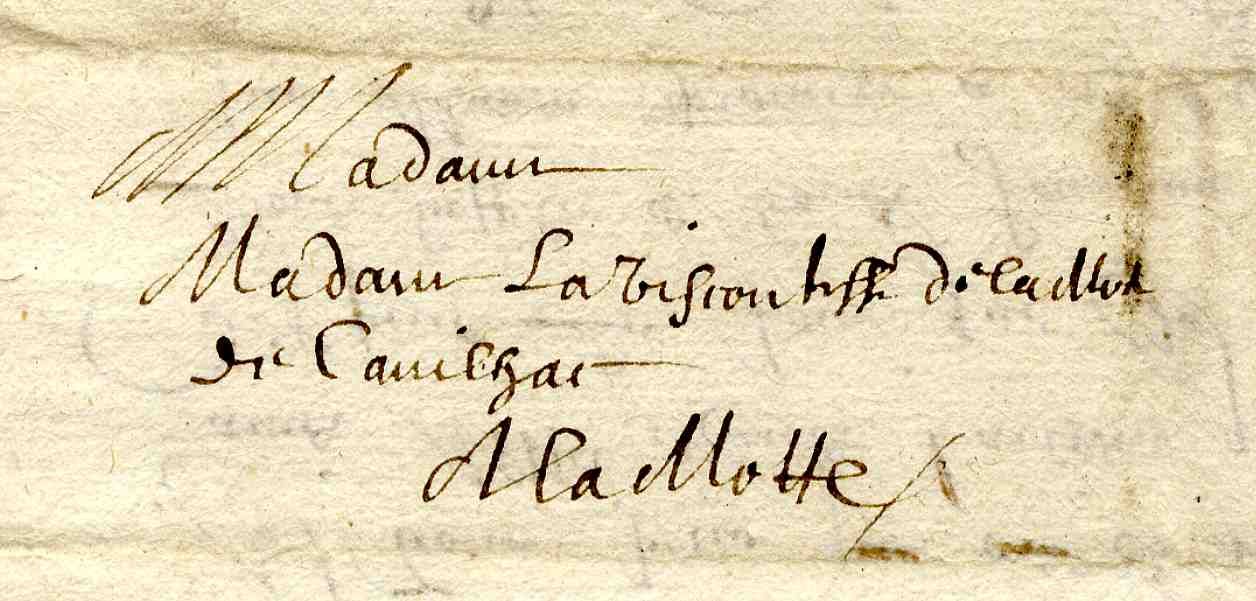 Madame
Madame La viscontesse de la Mote
de Canilhac
A la Motte